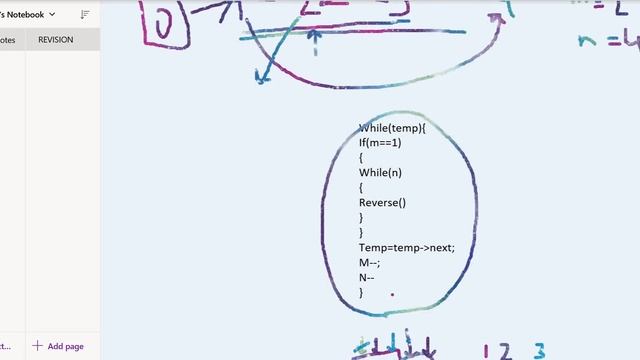 's Notebook
otes
REVISION
0
n = 4
While(temp){
If(m==1)
{
While(n)
{
Reverse()
}
}
Temp=temp->next;
M--;
N--
}
1 2 3
t...
Add page